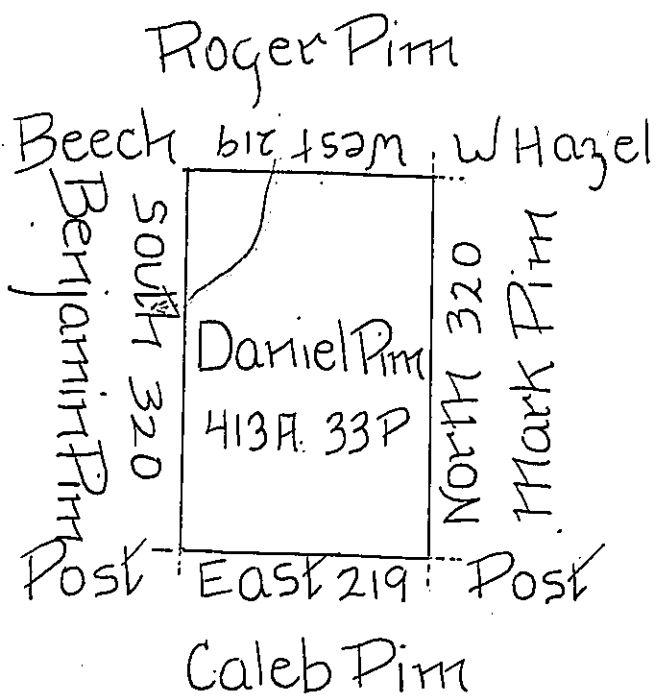 Roger Pim
Beech West 219 W Hazel
Benjamin Pim
South 320
Daniel Pim
413A. 33P
North 320
Mark Pim
Post East 219 Post
Caleb Pim